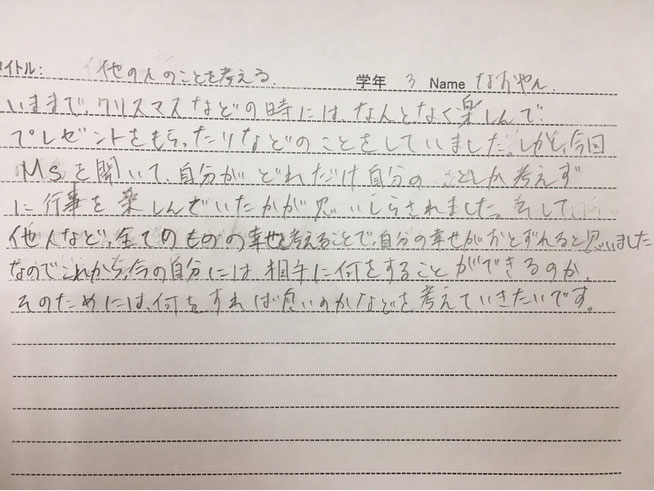 イトル: 他の人のことを考える 学年 3 Name なおやん
いままで、クリスマスなどの時には、なんとなく楽しんで
プレゼントをもらったりなどのことをしていました。しかし、今回
Msを聞いて、自分がどれだけ自分のことしか考えず
に行事を楽しんでいたかが思いしらされました。そして
他人など、全てのものの幸せを考えることで、自分の幸せがおとずれると思いました
なのでこれから、今の自分には相手に何をすることができるのか、
そのためには、何をすれば良いのかなどを考えていきたいです。